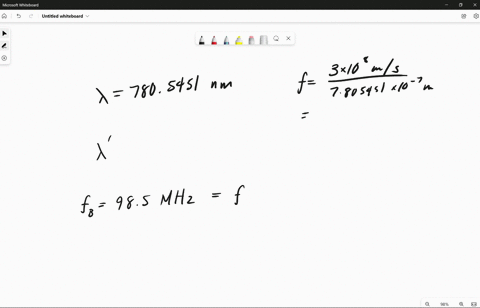 Microsoft Whiteboard
Untitled whiteboard
λ = 780.5451 nm
f = 3×10⁸ m/s / 7.805451 ×10⁻⁷ m
=
λ'
f_B = 98.5 MHz = f
98%